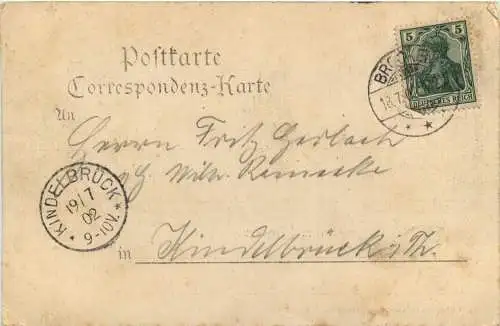 Postkarte
Correspondenz-Karte
An
Herrn Fritz Gerlach
Wilh. Reinecke
in Kindelbrück i/Th.
5 5
DEUTSCHES REICH
18.7
KINDELBRÜCK
19/7
02
9-10V.